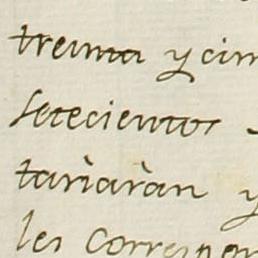 treinta y cin
setecientos
tariaràn y
les correspon